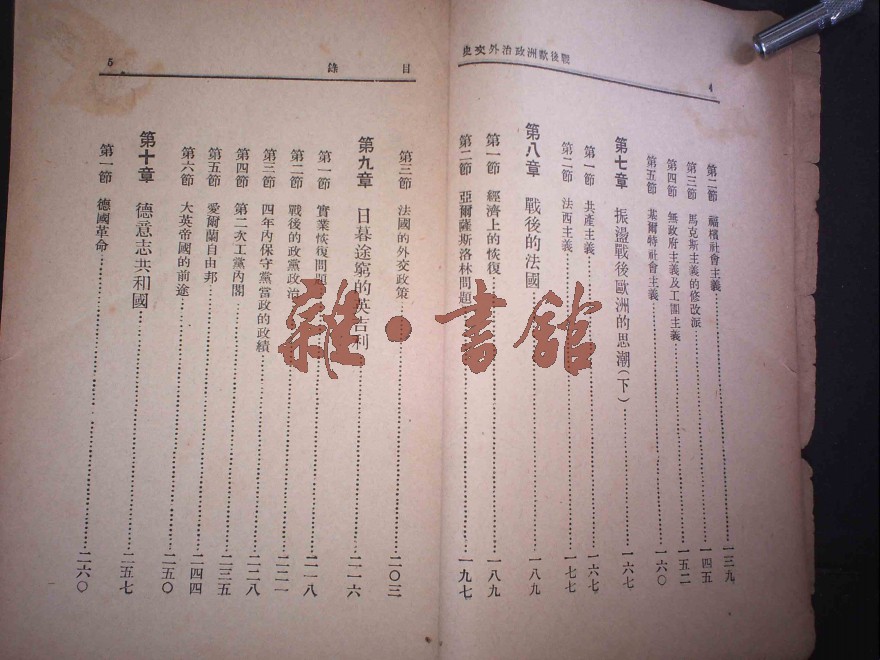 戰後歐洲政治外交史
4
第二節 福檳社會主義……一三九
第三節 馬克斯主義的修改派……一四五
第四節 無政府主義及工團主義……一五二
第五節 基爾特社會主義……一六〇
第七章 振盪戰後歐洲的思潮(下)……一六七
第一節 共產主義……一六七
第二節 法西主義……一七七
第八章 戰後的法國……一八九
第一節 經濟上的恢復……一八九
第二節 亞爾薩斯洛林問題……一九七
目 錄
5
第三節 法國的外交政策……二〇三
第九章 日暮途窮的英吉利……二一六
第一節 實業恢復問題……二一八
第二節 戰後的政黨政治……二二一
第三節 四年內保守黨當政的政績……二二八
第四節 第二次工黨內閣……二三五
第五節 愛爾蘭自由邦……二四四
第六節 大英帝國的前途……二五〇
第十章 德意志共和國……二五七
第一節 德國革命……二六〇
雜·書館